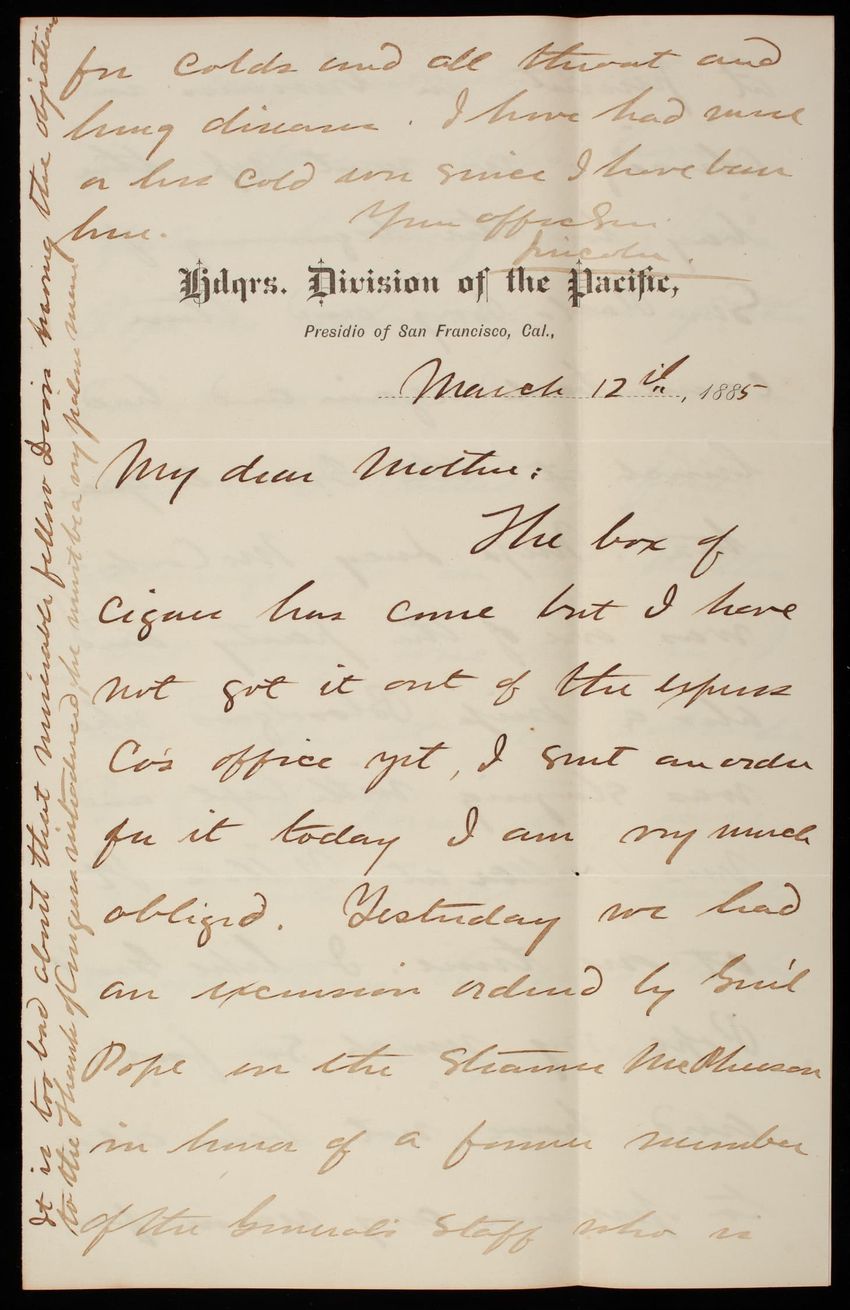 for colds and all throat and
lung diseases. I have had more
or less cold ever since I have been
here.
Your affec Son
Lincoln.
Hdqrs. Division of the Pacific,
Presidio of San Francisco, Cal.,
March 12th, 1885
My dear Mother:
The box of
cigars has come but I have
not got it out of the express
Co's office yet, I sent an order
for it today I am very much
obliged. Yesterday we had
an excursion ordered by Gen'l
Pope on the Steamer McPherson
in honor of a former member
of the Generals Staff who is
It is too bad about that miserable fellow Dorin having the objection
to the Thanks of Congress introduced, he must be a very mean